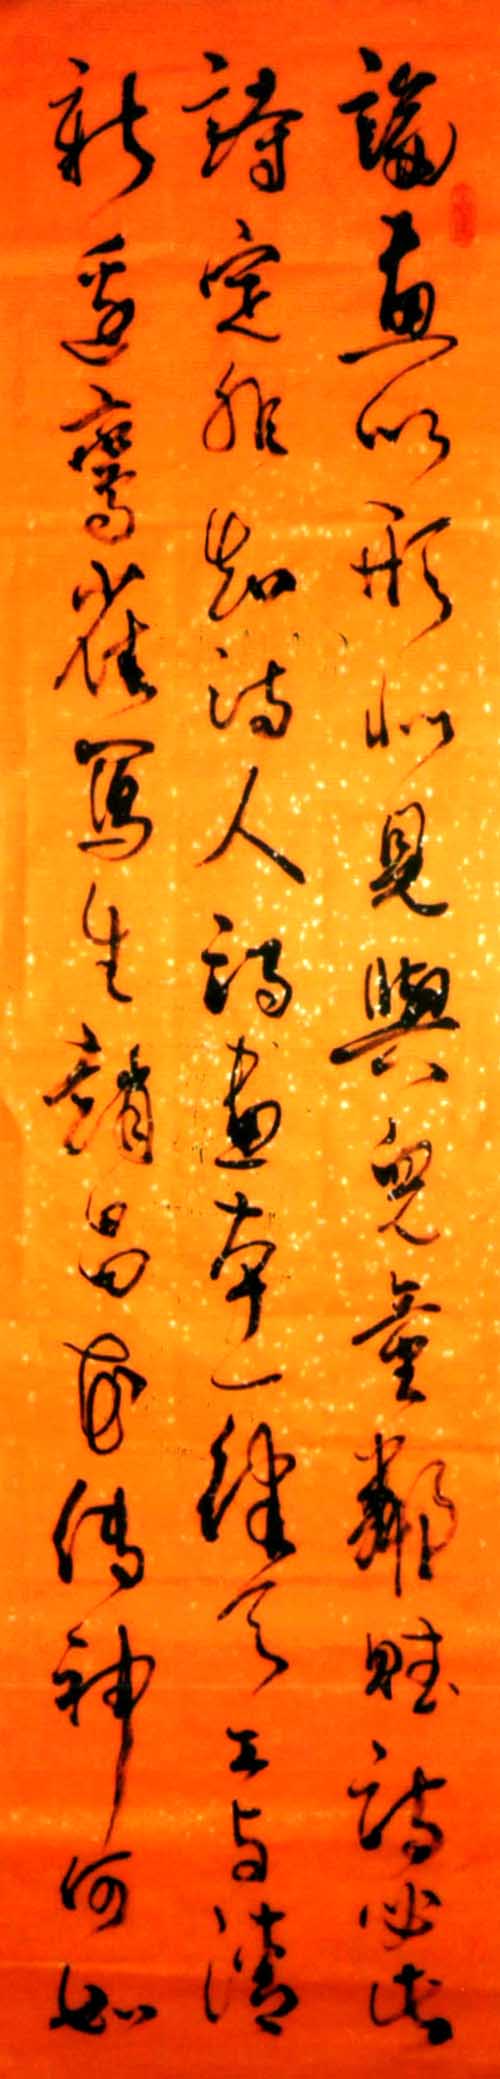 論畫以形似見與兒童鄰賦詩必此
詩定非知詩人詩畫本一律天工与清
新邊鸞雀寫生趙昌花傳神何如